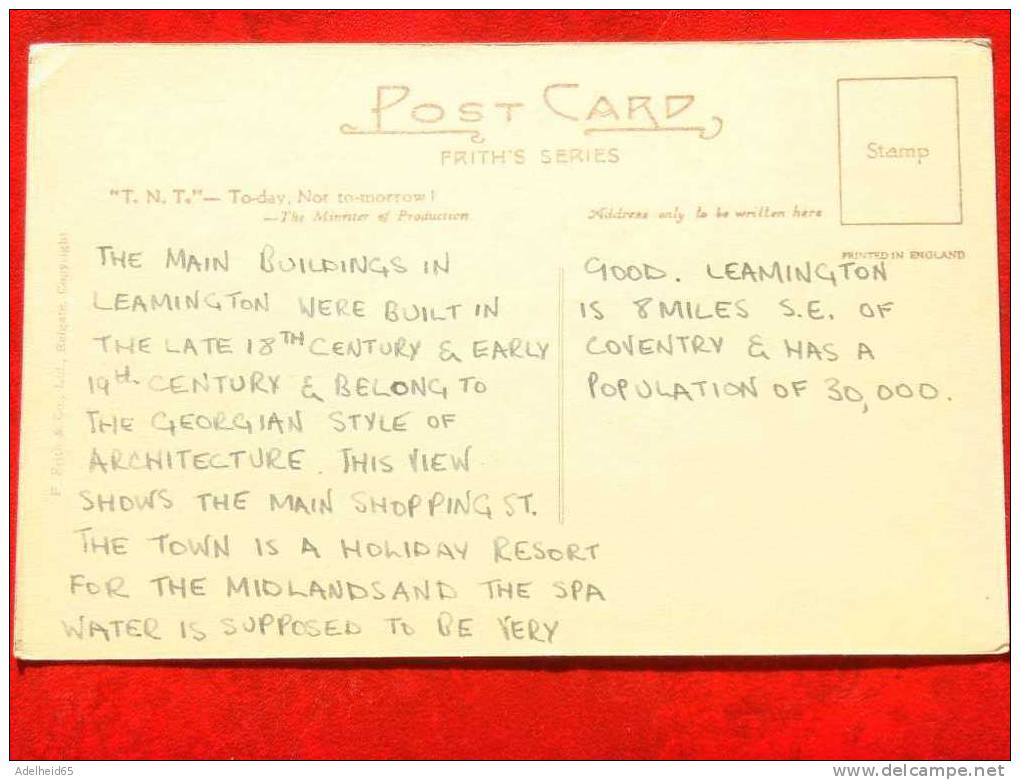 POST CARD
FRITH'S SERIES
Stamp
"T. N. T."— To-day, Not to-morrow!
—The Minister of Production
Address only to be written here
PRINTED IN ENGLAND
F. Frith & Co., Ltd., Reigate. Copyright
THE MAIN BUILDINGS IN
LEAMINGTON WERE BUILT IN
THE LATE 18TH CENTURY & EARLY
19th. CENTURY & BELONG TO
THE GEORGIAN STYLE OF
ARCHITECTURE. THIS VIEW
SHOWS THE MAIN SHOPPING ST.
THE TOWN IS A HOLIDAY RESORT
FOR THE MIDLANDS AND THE SPA
WATER IS SUPPOSED TO BE VERY
GOOD. LEAMINGTON
IS 8 MILES S.E. OF
COVENTRY & HAS A
POPULATION OF 30,000.
Adelheid65
delcampe.net